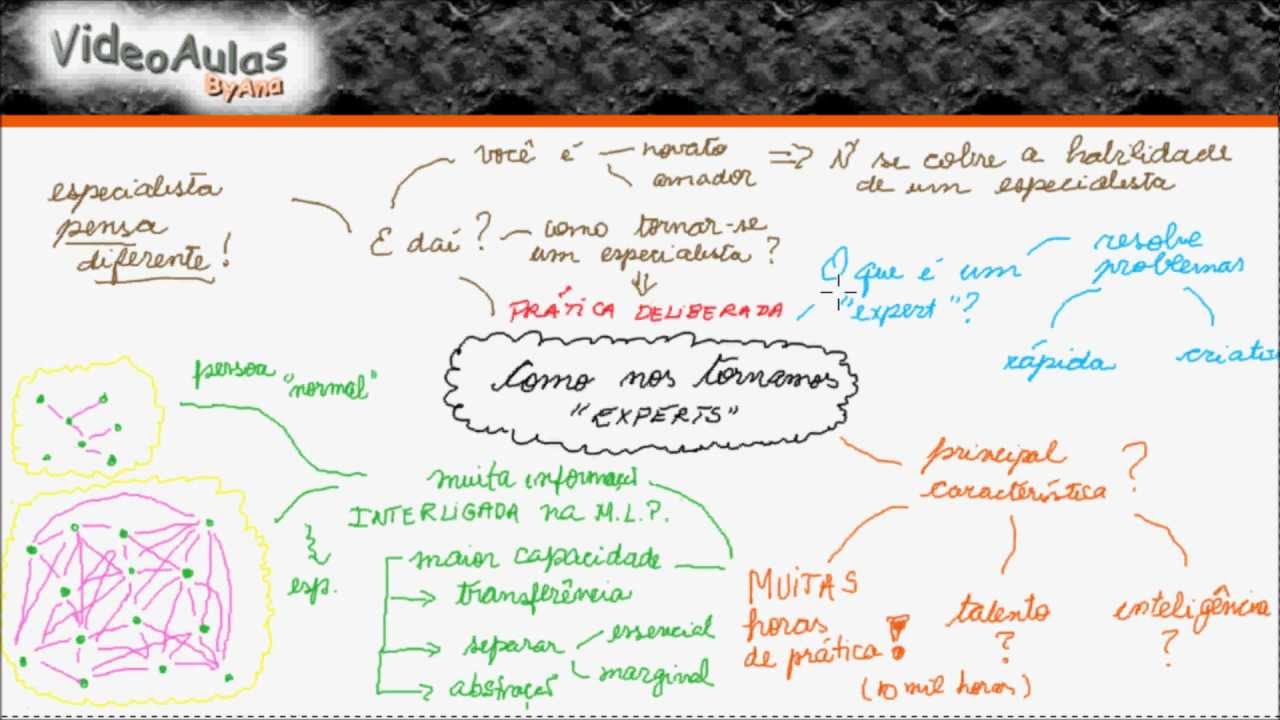 VideoAulas
ByAna
você é
novato
amador
=>
Ñ se cobre a habilidade
de um especialista
especialista
pensa
diferente!
E daí?
como tornar-se
um especialista?
PRÁTICA DELIBERADA
O que é um
"expert"?
resolve
problemas
rápida
criativ
Como nos tornamos
"EXPERTS"
persoa "normal"
muita informaç
INTERLIGADA na M.L.P.
esp.
maior capacidade
transferência
separar
essencial
marginal
abstraç
principal
característica
?
MUITAS
horas
de prática!
(10 mil horas)
talento
?
inteligência
?